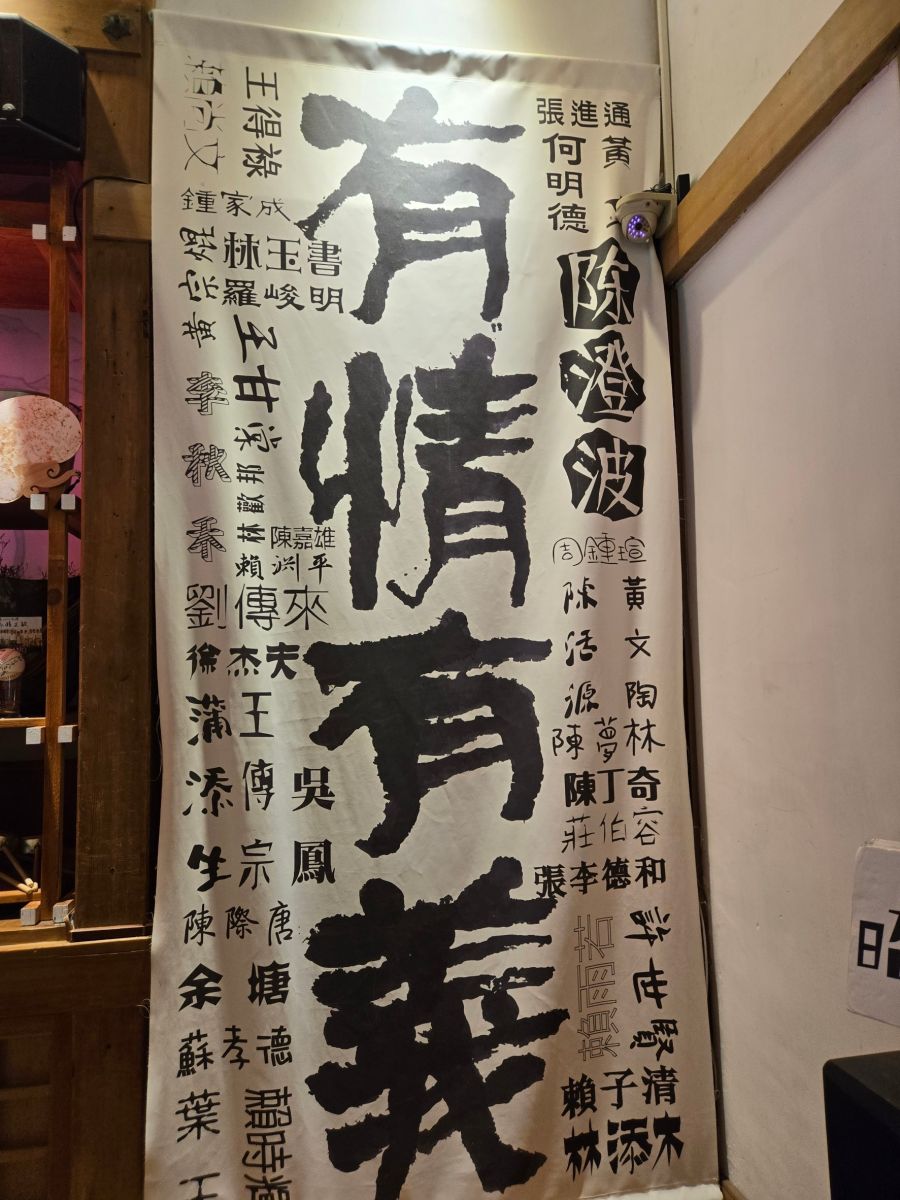 有情有義
張進通
何明德
黃
陈澄波
周鍾瑄
陳活源
黃文陶
陳夢林
陳丁奇
莊伯容
張李德和
賴雨若
許世賢
賴子清
林添木
王得祿
尚文
鍾家成
林玉書
羅峻明
黃宗焜
王甘棠
林歡邦
陳嘉雄
賴淵平
劉傳來
徐杰夫
蒲添生
王傳宗
吳鳳
陳際唐
余塘
蘇孝德
葉王
賴時
昭